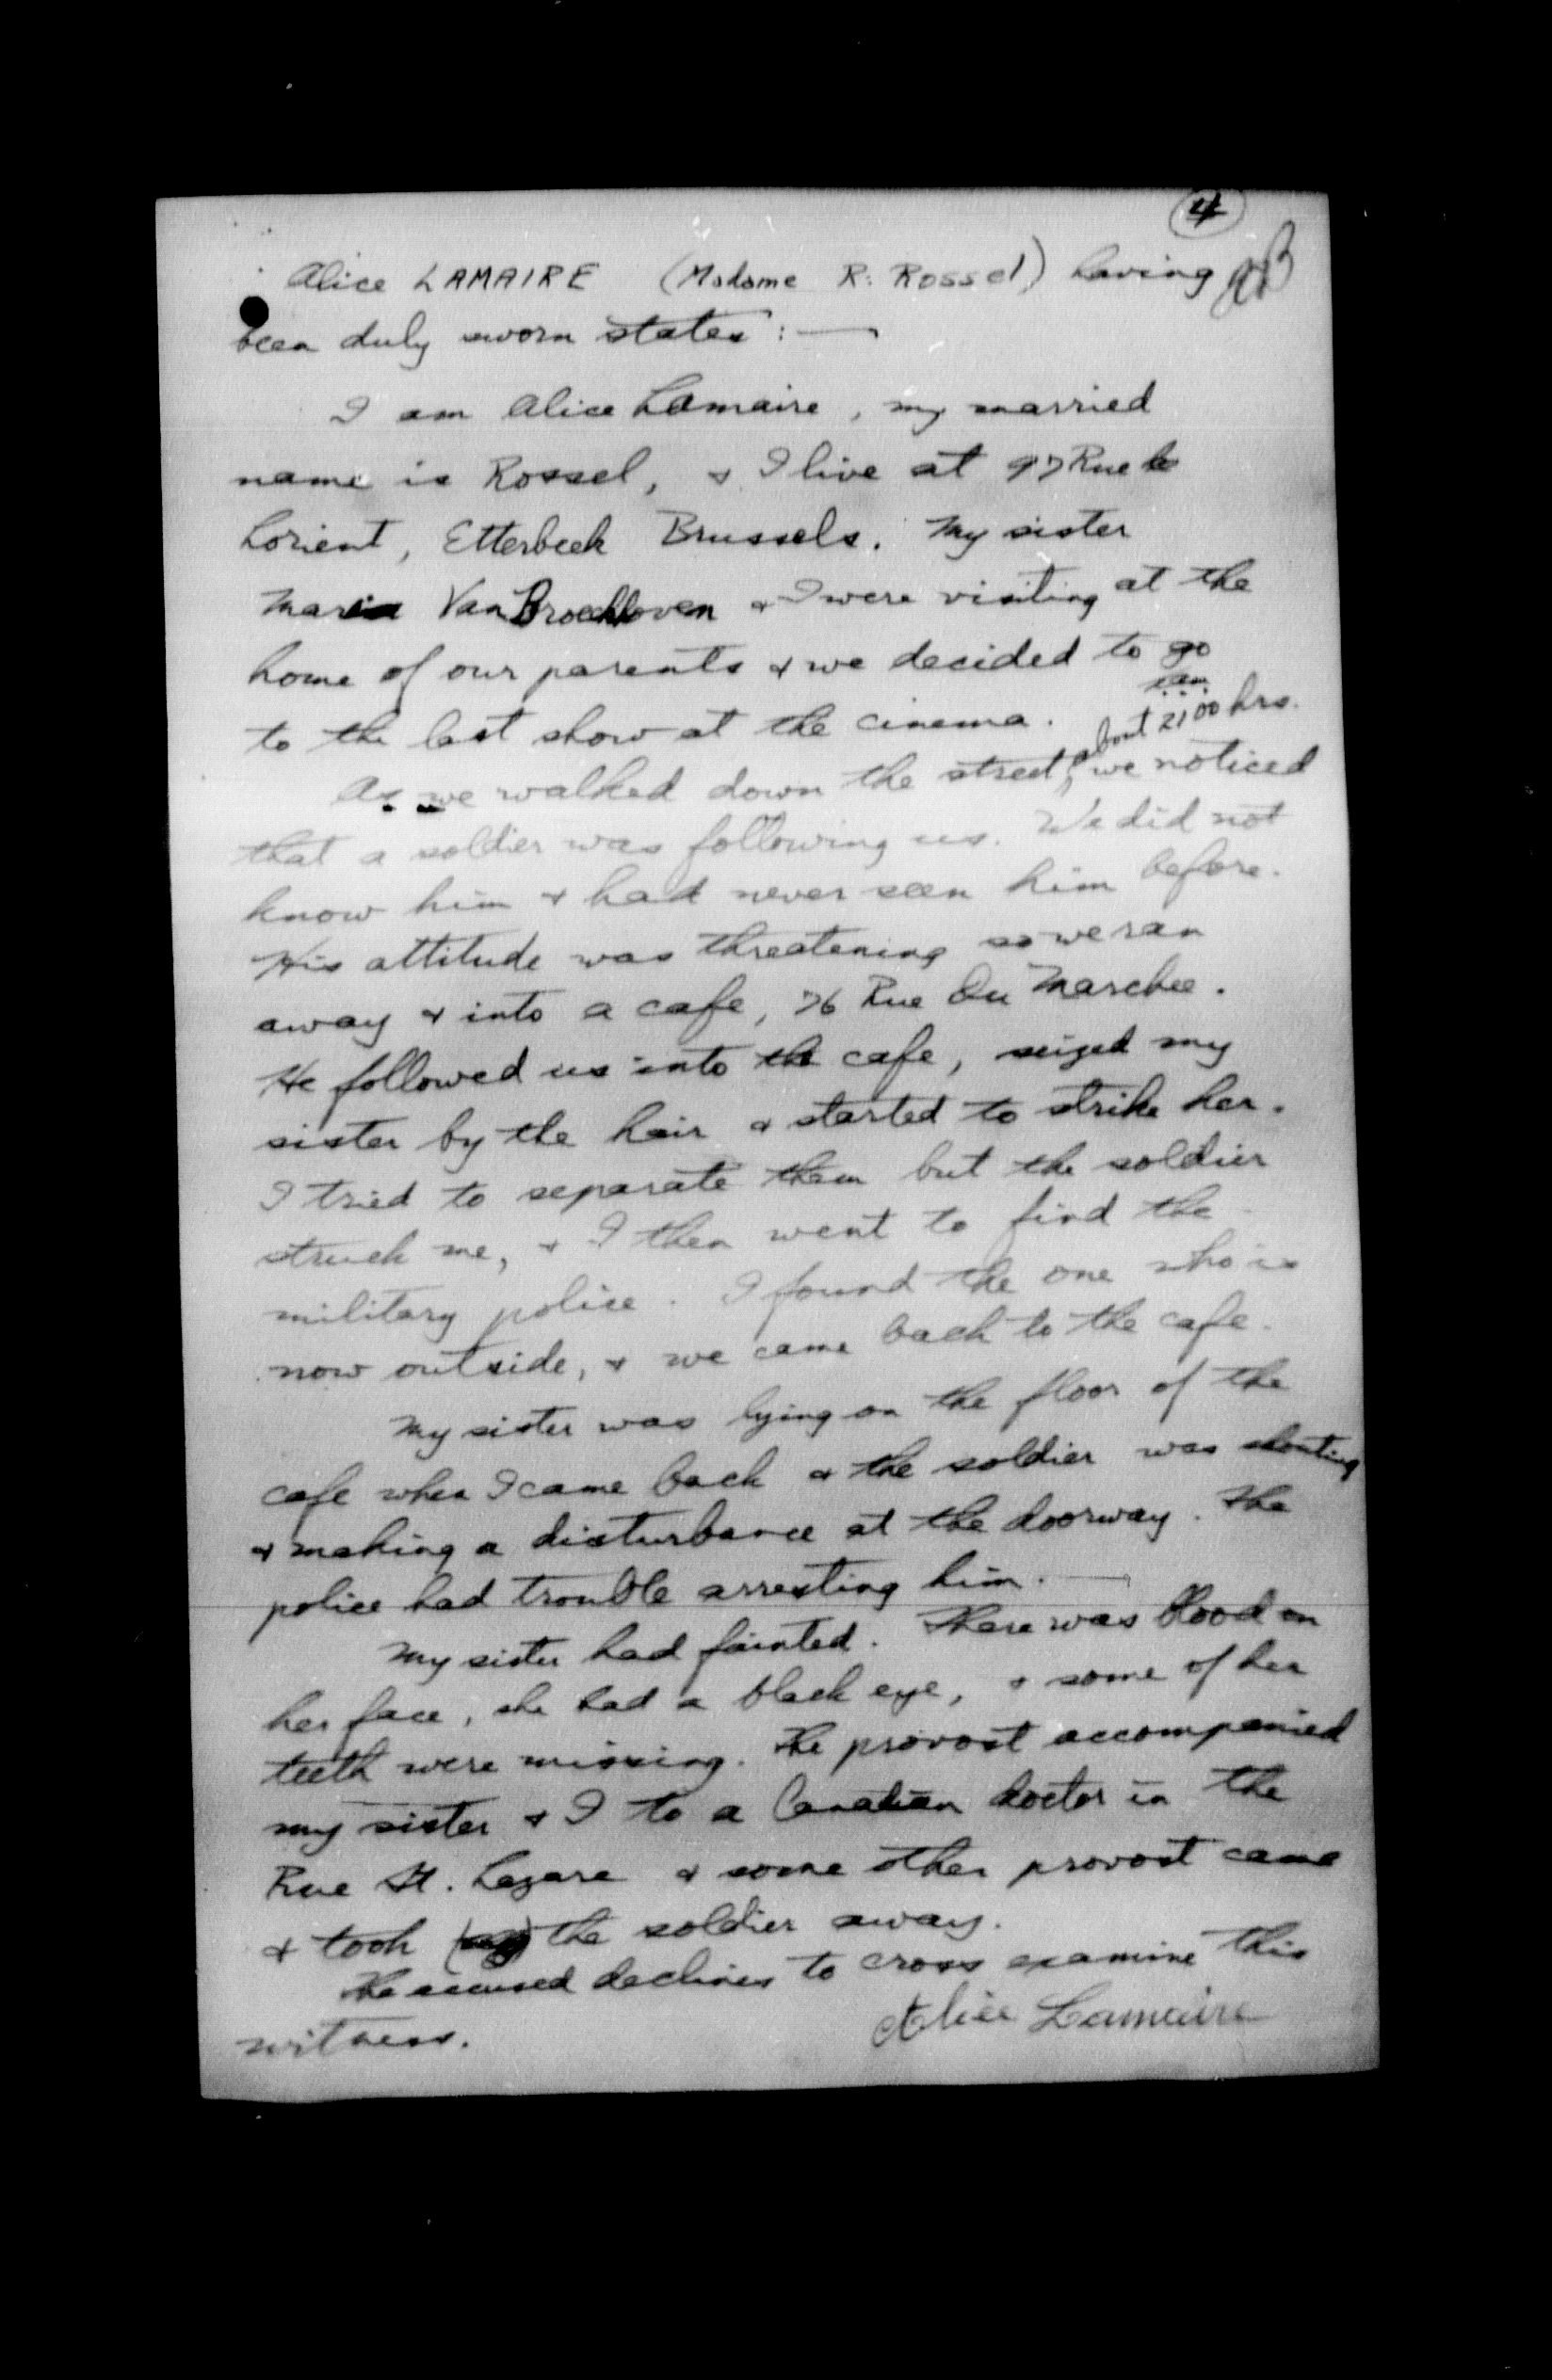 4
Alice LAMAIRE (Madame R. Rossel) having
been duly sworn states: —
I am Alice Lamaire, my married
name is Rossel, & I live at 97 Rue de
Lorient, Etterbeek Brussels. My sister
Maria Van Broekhoven & I were visiting at the
home of our parents & we decided to go
to the last show at the cinema.
about 2100 hrs.
As we walked down the street, we noticed
that a soldier was following us. We did not
know him & had never seen him before.
His attitude was threatening so we ran
away & into a cafe, 76 Rue Du Marchee.
He followed us into the cafe, seized my
sister by the hair & started to strike her.
I tried to separate them but the soldier
struck me, & I then went to find the
military police. I found the one who is
now outside, & we came back to the cafe.
My sister was lying on the floor of the
cafe when I came back & the soldier was shouting
& making a disturbance at the doorway. The
police had trouble arresting him. —
My sister had fainted. There was blood on
her face, she had a black eye, & some of her
teeth were missing. The provost accompanied
my sister & I to a Canadian doctor in the
Rue St. Lazare & some other provost came
& took the soldier away.
The accused declines to cross examine this
witness.
Alice Lamaire